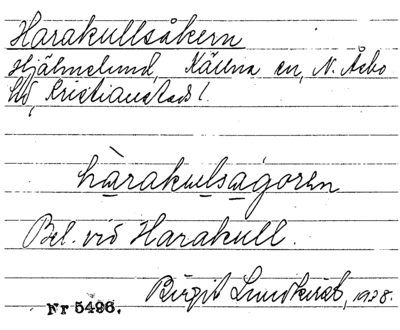 Harakullsåkern
Hjälmslund, Källna sn, N. Åsbo
hd, Kristianstads l.
hàrakulsagoren
Bel. vid Harakull.
Birgit Lundkvist, 1928.
Nr 5496.